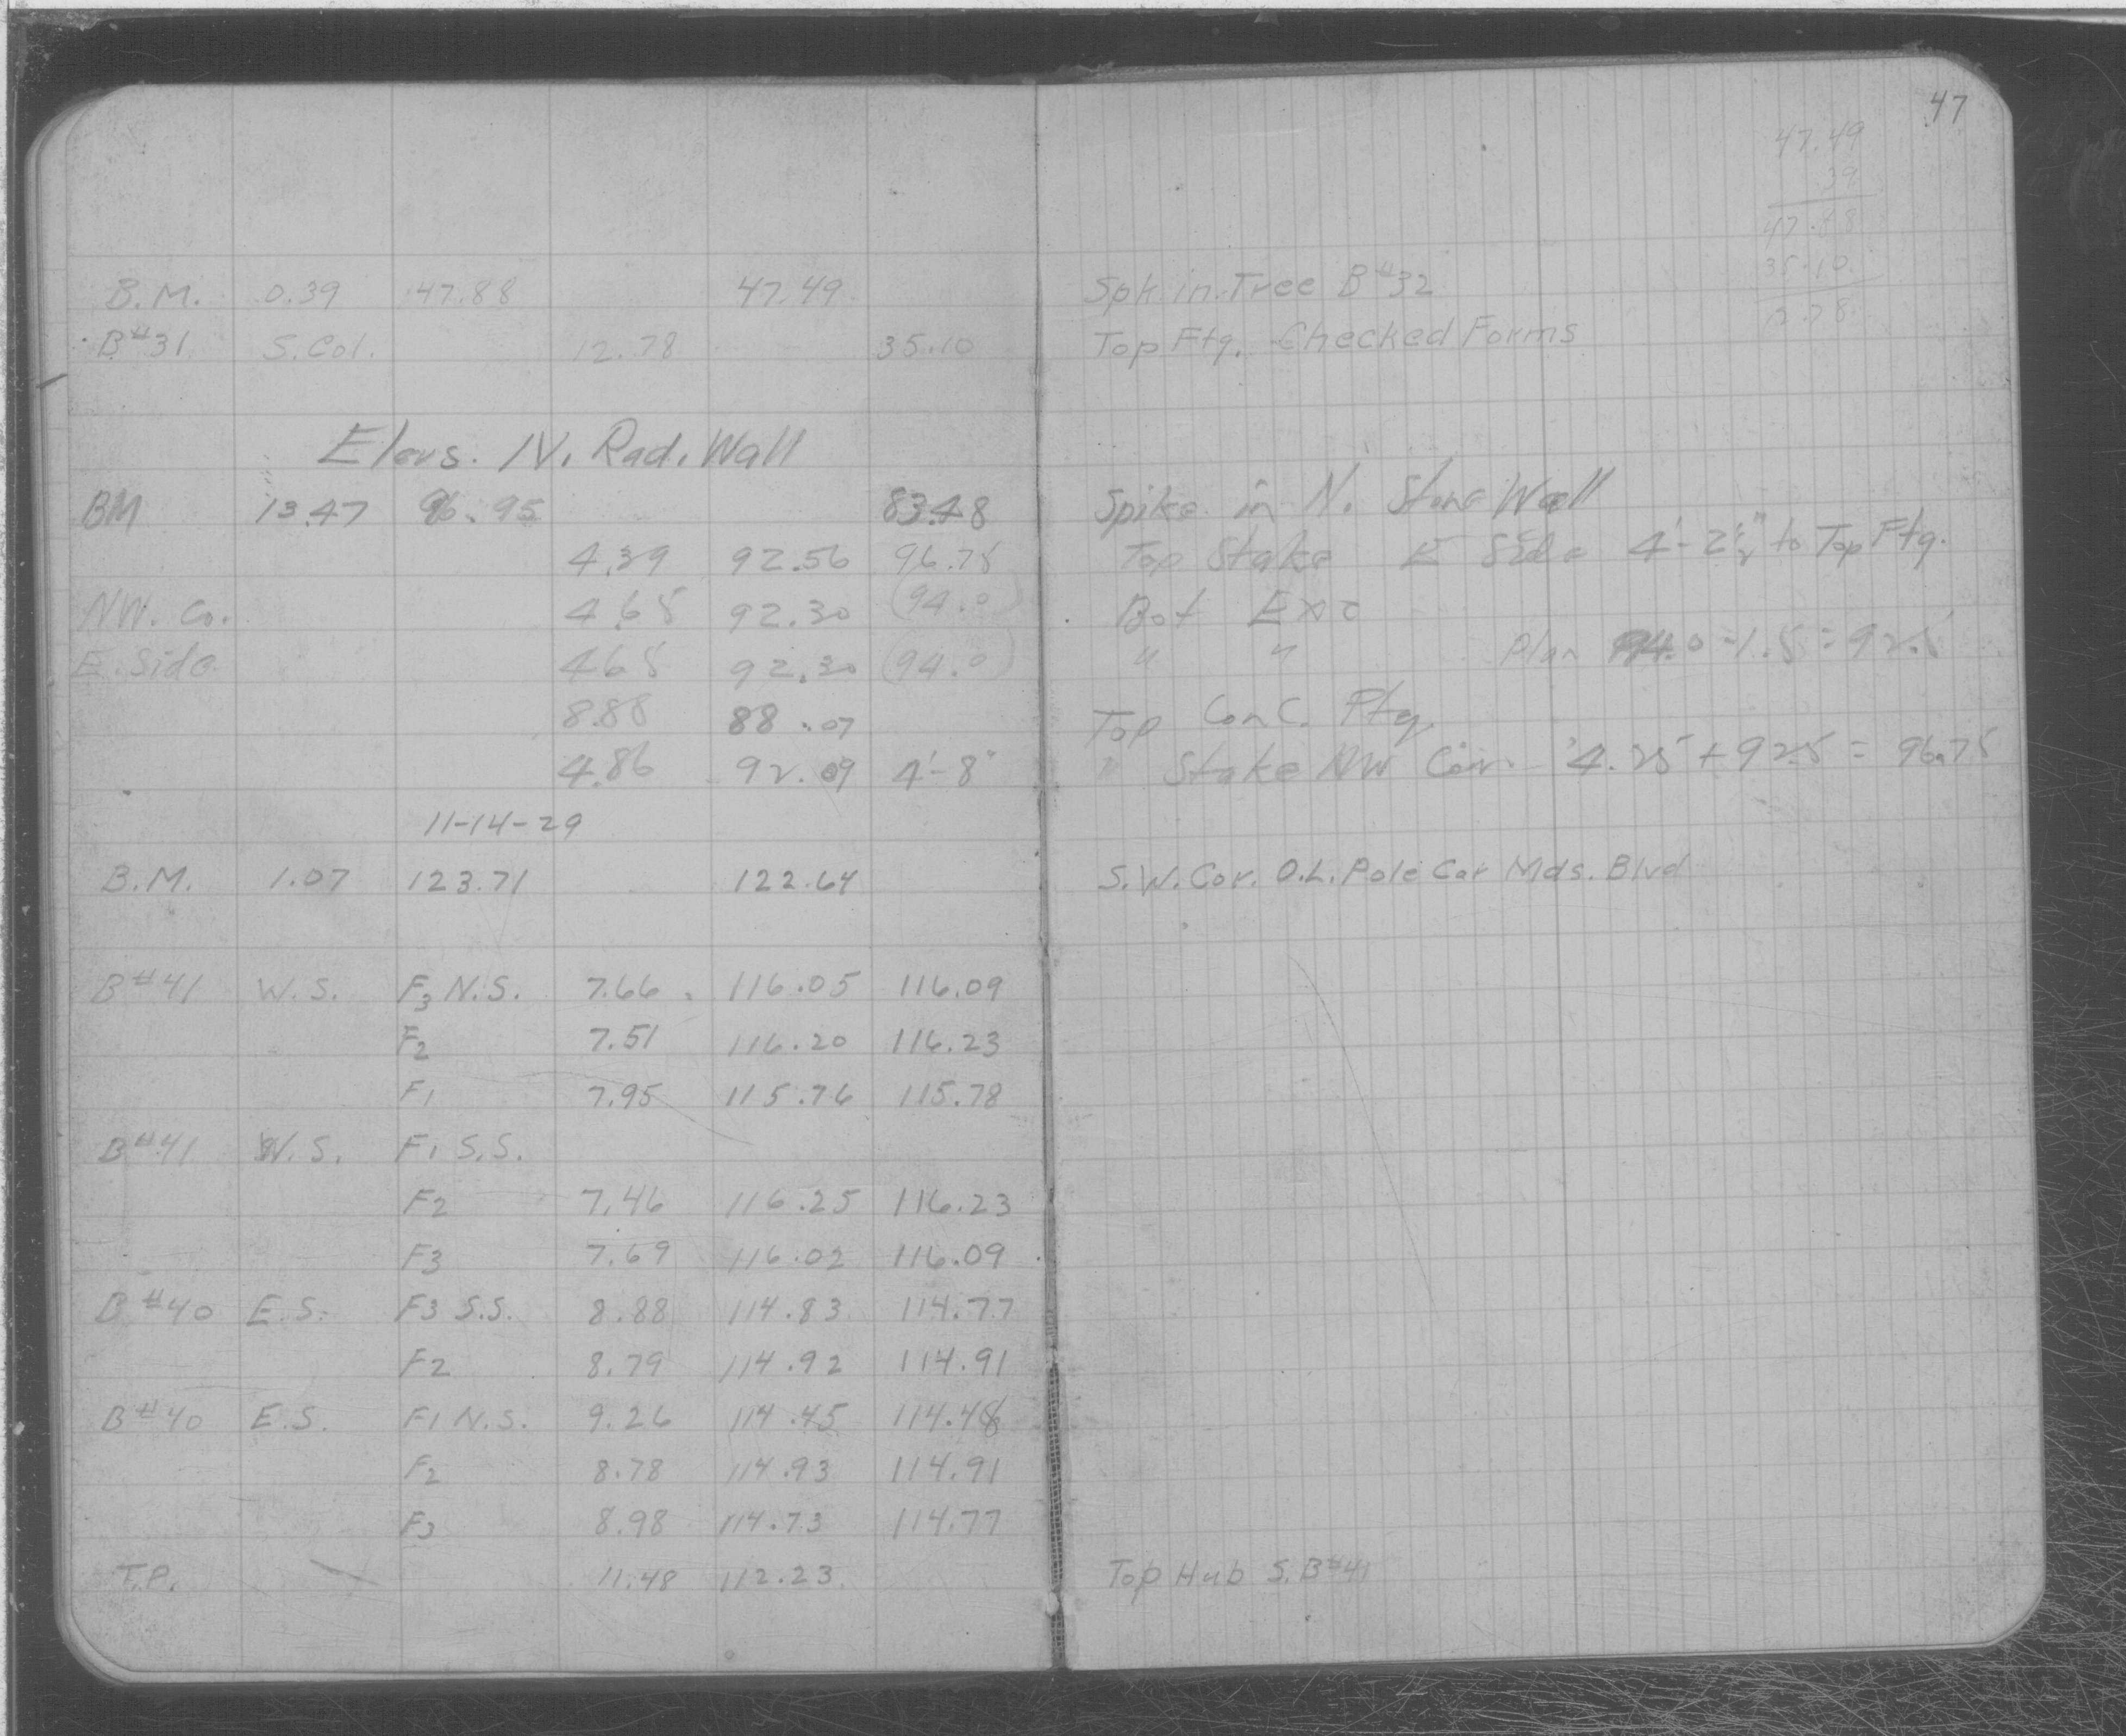 47
47.49
.39
47.88
35.10
12.78
B.M. 0.39 47.88 47.49 Spk. in Tree B#32
B#31 S. Col. 12.78 35.10 Top Ftg. Checked Forms
Elevs. N. Rad. Wall
BM 13.47 96.95 83.48 Spike in N. Stone Wall
4.39 92.56 96.75 Top Stake E Side 4'-2½" to Top Ftg.
NW. Co. 4.65 92.30 (94.0) Bot Exc
E. Side 4.65 92.30 (94.0) " " Plan 94.0-1.5=92.5
8.88 88.07 Top Conc. Ftg.
4.86 92.09 4'-8" " Stake NW Cor. 4.25+92.5=96.75
11-14-29
B.M. 1.07 123.71 122.64 S.W. Cor. O.L. Pole Car Mds. Blvd
B#41 W.S. F3 N.S. 7.66 116.05 116.09
F2 7.51 116.20 116.23
F1 7.95 115.76 115.78
B#41 W.S. F1 S.S.
F2 7.46 116.25 116.23
F3 7.69 116.02 116.09
B#40 E.S. F3 S.S. 8.88 114.83 114.77
F2 8.79 114.92 114.91
B#40 E.S. F1 N.S. 9.26 114.45 114.48
F2 8.78 114.93 114.91
F3 8.98 114.73 114.77
T.P. 11.48 112.23 Top Hub S. B#41